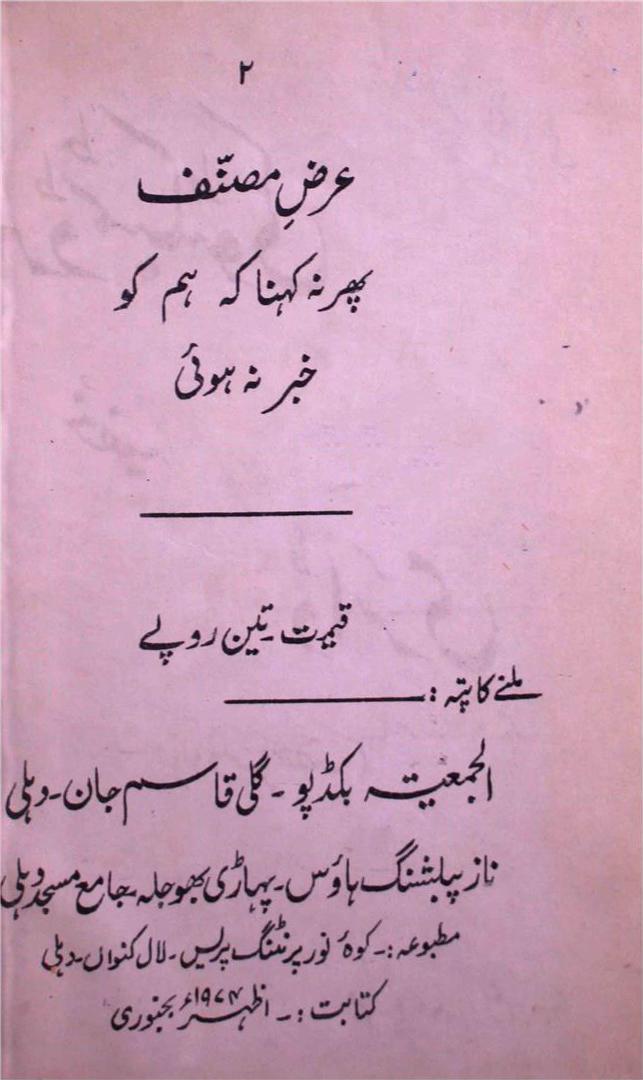 ۲
عرضِ مصنّف
پھر نہ کہنا کہ ہم کو
خبر نہ ہوئی
قیمت ۔ تین روپے
ملنے کا پتہ :
الجمعیتہ بکڈپو ۔ گلی قاسم جان ۔ دہلی
ناز پبلشنگ ہاؤس ۔ پہاڑی بھوجلہ ۔ جامع مسجد دہلی
مطبوعہ :۔ کوہ نور پرنٹنگ پریس ۔ لال کنواں ۔ دہلی
کتابت :۔ اظہر ۱۹۷۴ء بجنوری